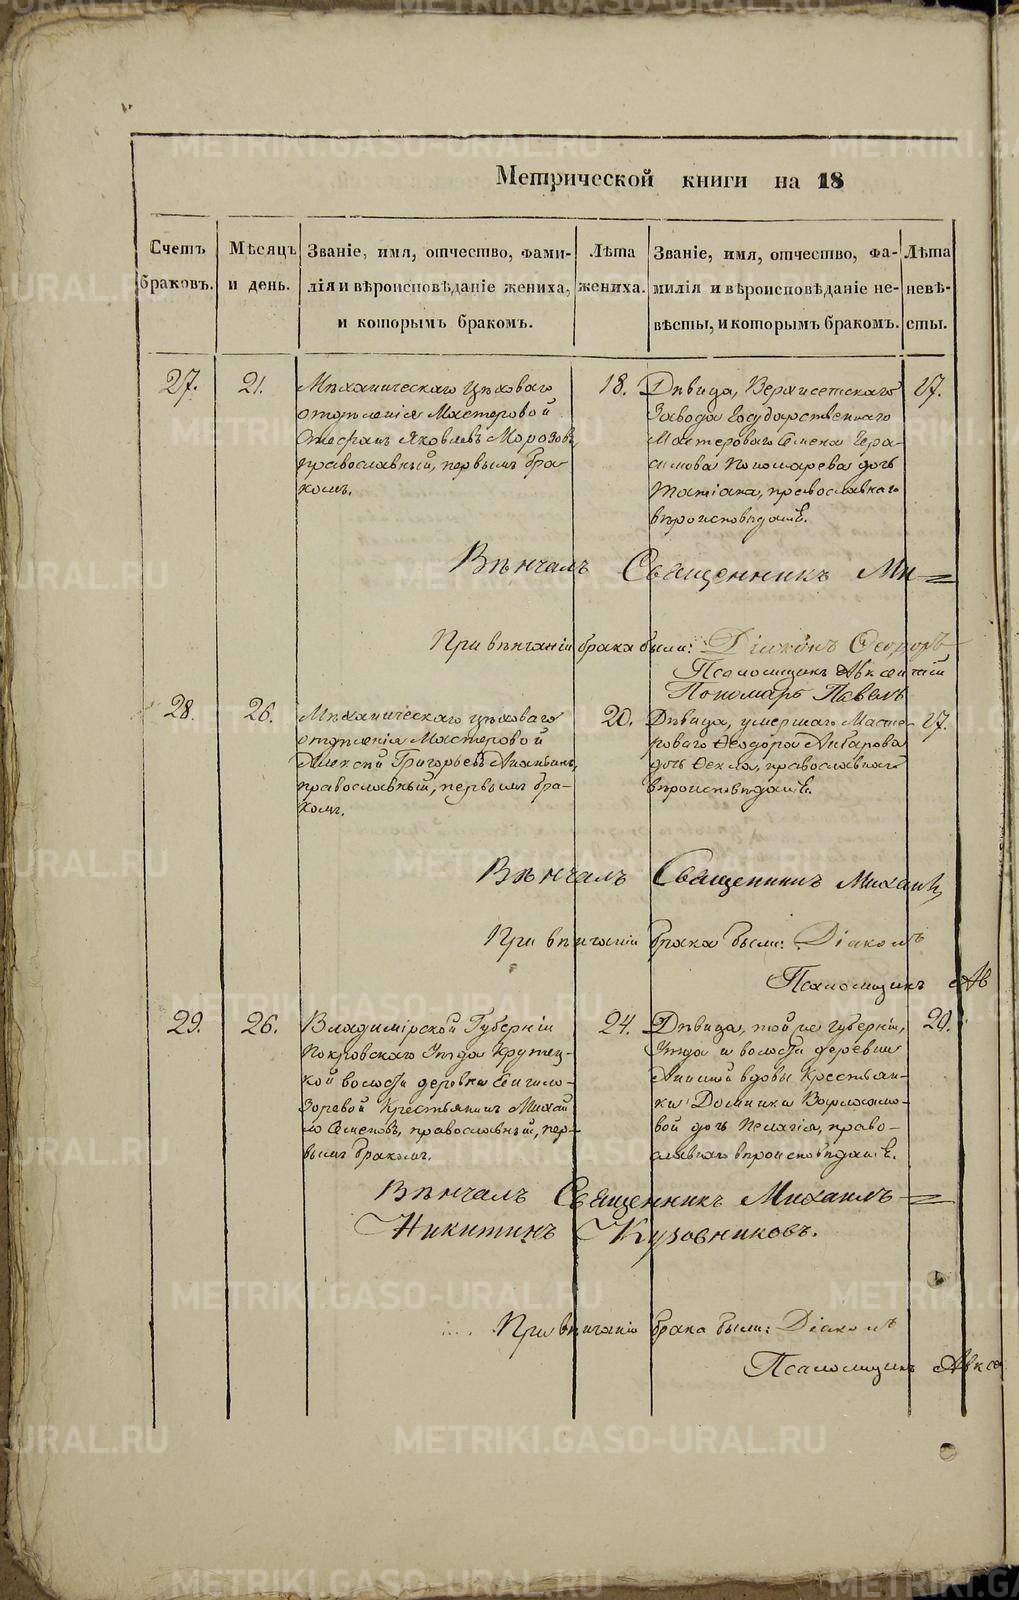 Метрической книги на 18
Счетъ браковъ.
Мѣсяцъ и день.
Званіе, имя, отчество, фами-
лія и вѣроисповѣданіе жениха,
и которымъ бракомъ.
Лѣта жениха.
Званіе, имя, отчество, фа-
милія и вѣроисповѣданіе не-
вѣсты, и которымъ бракомъ.
Лѣта невѣ-
сты.
27.
21.
Механическаго цѣховаго
отдѣленія Мастеровой
Стефанъ Яковлевъ Морозовъ,
православный, первымъ бра-
комъ.
18.
Дѣвица, Верхисетскаго
Завода Государственнаго
Мастероваго Семена Гера-
симова Пономарева дочь
Татіана, православнаго
вѣроисповѣданія.
27.
Вѣнчалъ Священникъ Ми=
При вѣнчаніи брака были: Діаконъ Ѳеодоръ
Псаломщикъ Авксентій
Пономарь Павелъ
28.
26.
Механическаго цѣховаго
отдѣленія Мастеровой
Алексѣй Григорьевъ Ананьинъ,
православный, первымъ бра-
комъ.
20.
Дѣвица, умершаго Масте-
роваго Ѳеодора Анбарова
дочь Ѳекла, православнаго
вѣроисповѣданія.
27.
Вѣнчалъ Священникъ Михаилъ
При вѣнчаніи брака были: Діаконъ
Псаломщикъ Ав
29.
26.
Владимірской Губерніи
Покровскаго Уѣзда Крутец-
кой волости деревни
Крестьянинъ Михаи
ло Семеновъ, православный, пер-
вымъ бракомъ.
24.
Дѣвица, той же губерніи,
Уѣзда и волости деревни
вдовы Крестьян-
ки Домники Варламо-
вой дочь Пелагія, право-
славнаго вѣроисповѣданія.
20.
Вѣнчалъ Священникъ Михаилъ =
Никитинъ Кузовниковъ.
При вѣнчаніи брака были: Діаконъ
Псаломщикъ Авксе
METRIKI.GASO-URAL.RU